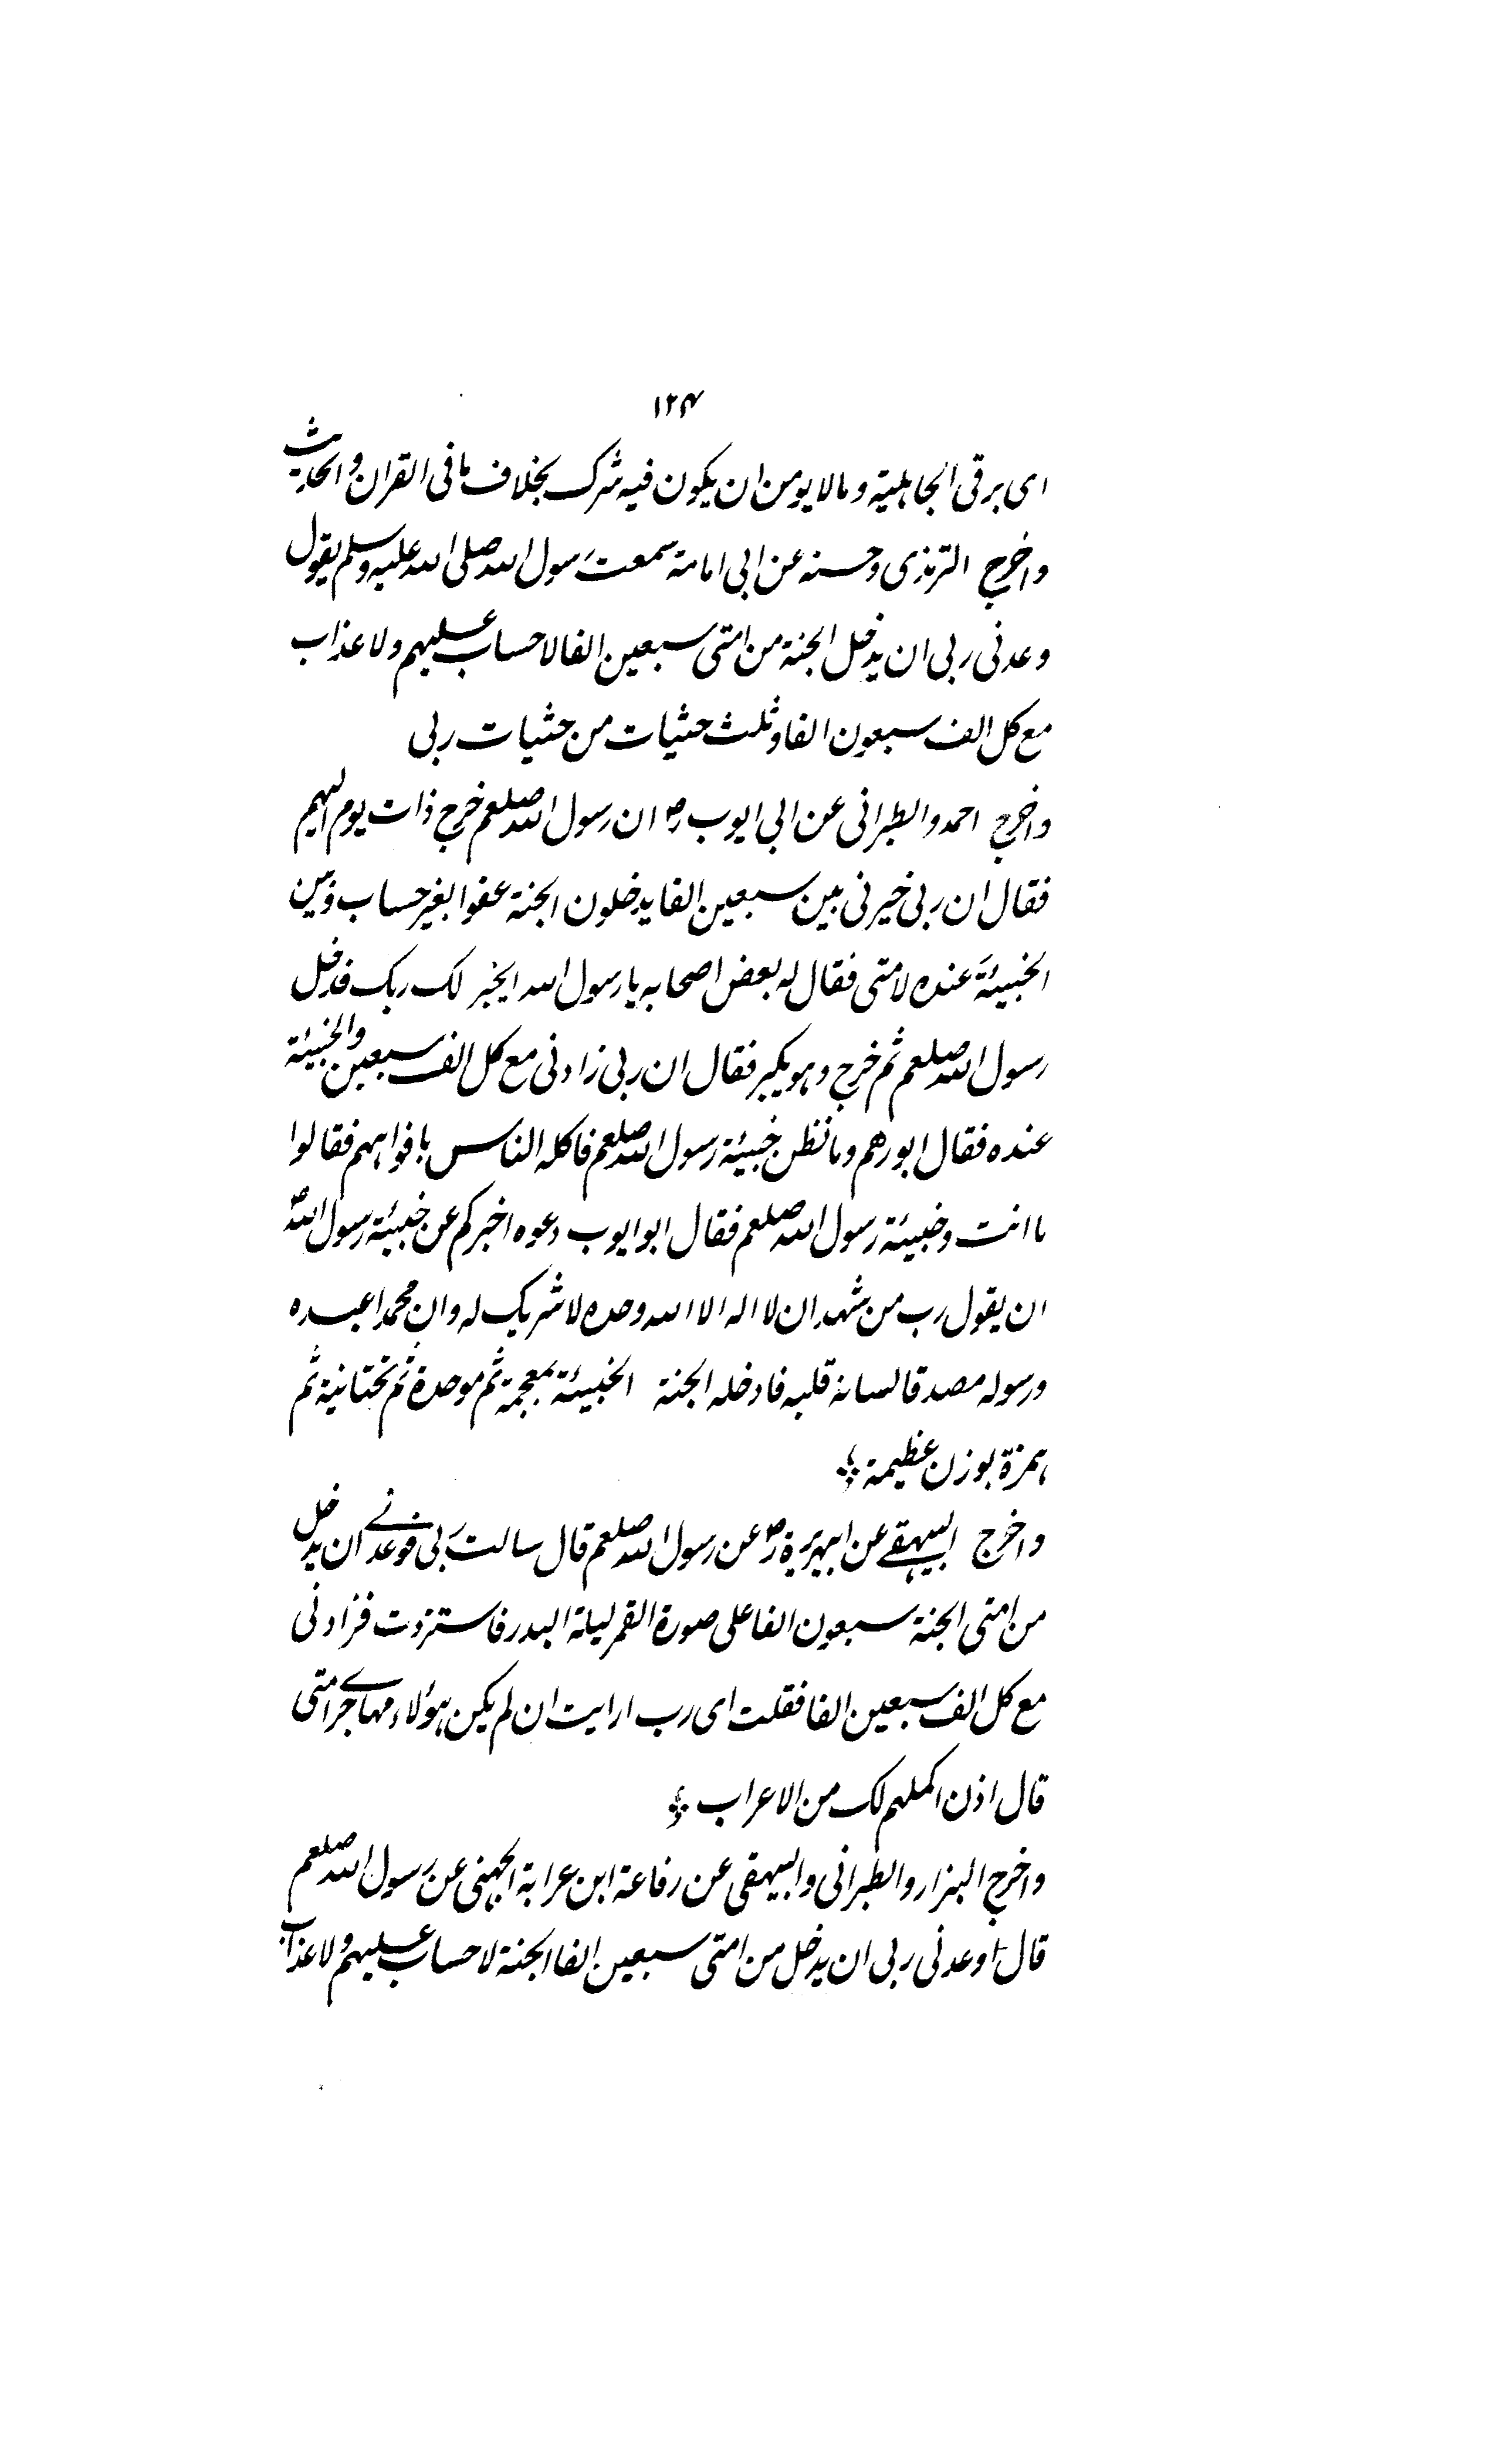 ۱۲۴
ای برقی الجاہلیة ومالا یومن ان یکون فیه شرک بخلاف ما فی القران والحدیث
واخرج الترمذی وحسنه عن ابی امامة سمعت رسول الله صلی الله علیه وسلم یقول
وعدنی ربی ان یدخل الجنة من امتی سبعین الفا لا حساب علیہم ولا عذاب
مع کل الف سبعون الفا وثلث حثیات من حثیات ربی
واخرج احمد والطبرانی عن ابی ایوب رض ان رسول الله صلعم خرج ذات یوم الیہم
فقال ان ربی خیرنی بین سبعین الفا یدخلون الجنة عفوا بغیر حساب وبین
الخبیئة عنده لامتی فقال له بعض اصحابه یا رسول الله ایخبر لک ربک فدخل
رسول الله صلعم ثم خرج وہو یکبر فقال ان ربی زادنی مع کل الف سبعین والخبیئة
عنده فقال ابو رهم وما نظن خبیئة رسول الله صلعم فاکله الناس بافواہہم فقالوا
ما انت وخبیئة رسول الله صلعم فقال ابو ایوب دعوه اخبرکم عن خبیئة رسول الله ص
ان یقول رب من شہد ان لا اله الا الله وحده لا شریک له وان محمدا عبده
ورسوله مصدقا لسانه قلبه فادخله الجنة الخبیئة بمعجمة ثم موحدة ثم تحتانیة ثم
ہمزة بوزن عظیمة
واخرج البیہقے عن ابیہریرة رض عن رسول الله صلعم قال سالت ربی فوعدنے ان یدخل
من امتی الجنة سبعون الفا علی صورة القمر لیلة البدر فاستزدت فزادنی
مع کل الف سبعین الفا فقلت ای رب ارایت ان لم یکن ہؤلاء مہاجرے امتی
قال اذن اکملہم لک من الاعراب
واخرج البزار والطبرانی والبیہقی عن رفاعة ابن عرابة الجہنی عن رسول الله صلعم
قال اوعدنی ربی ان یدخل من امتی سبعین الفا الجنة لا حساب علیہم ولا عذاب